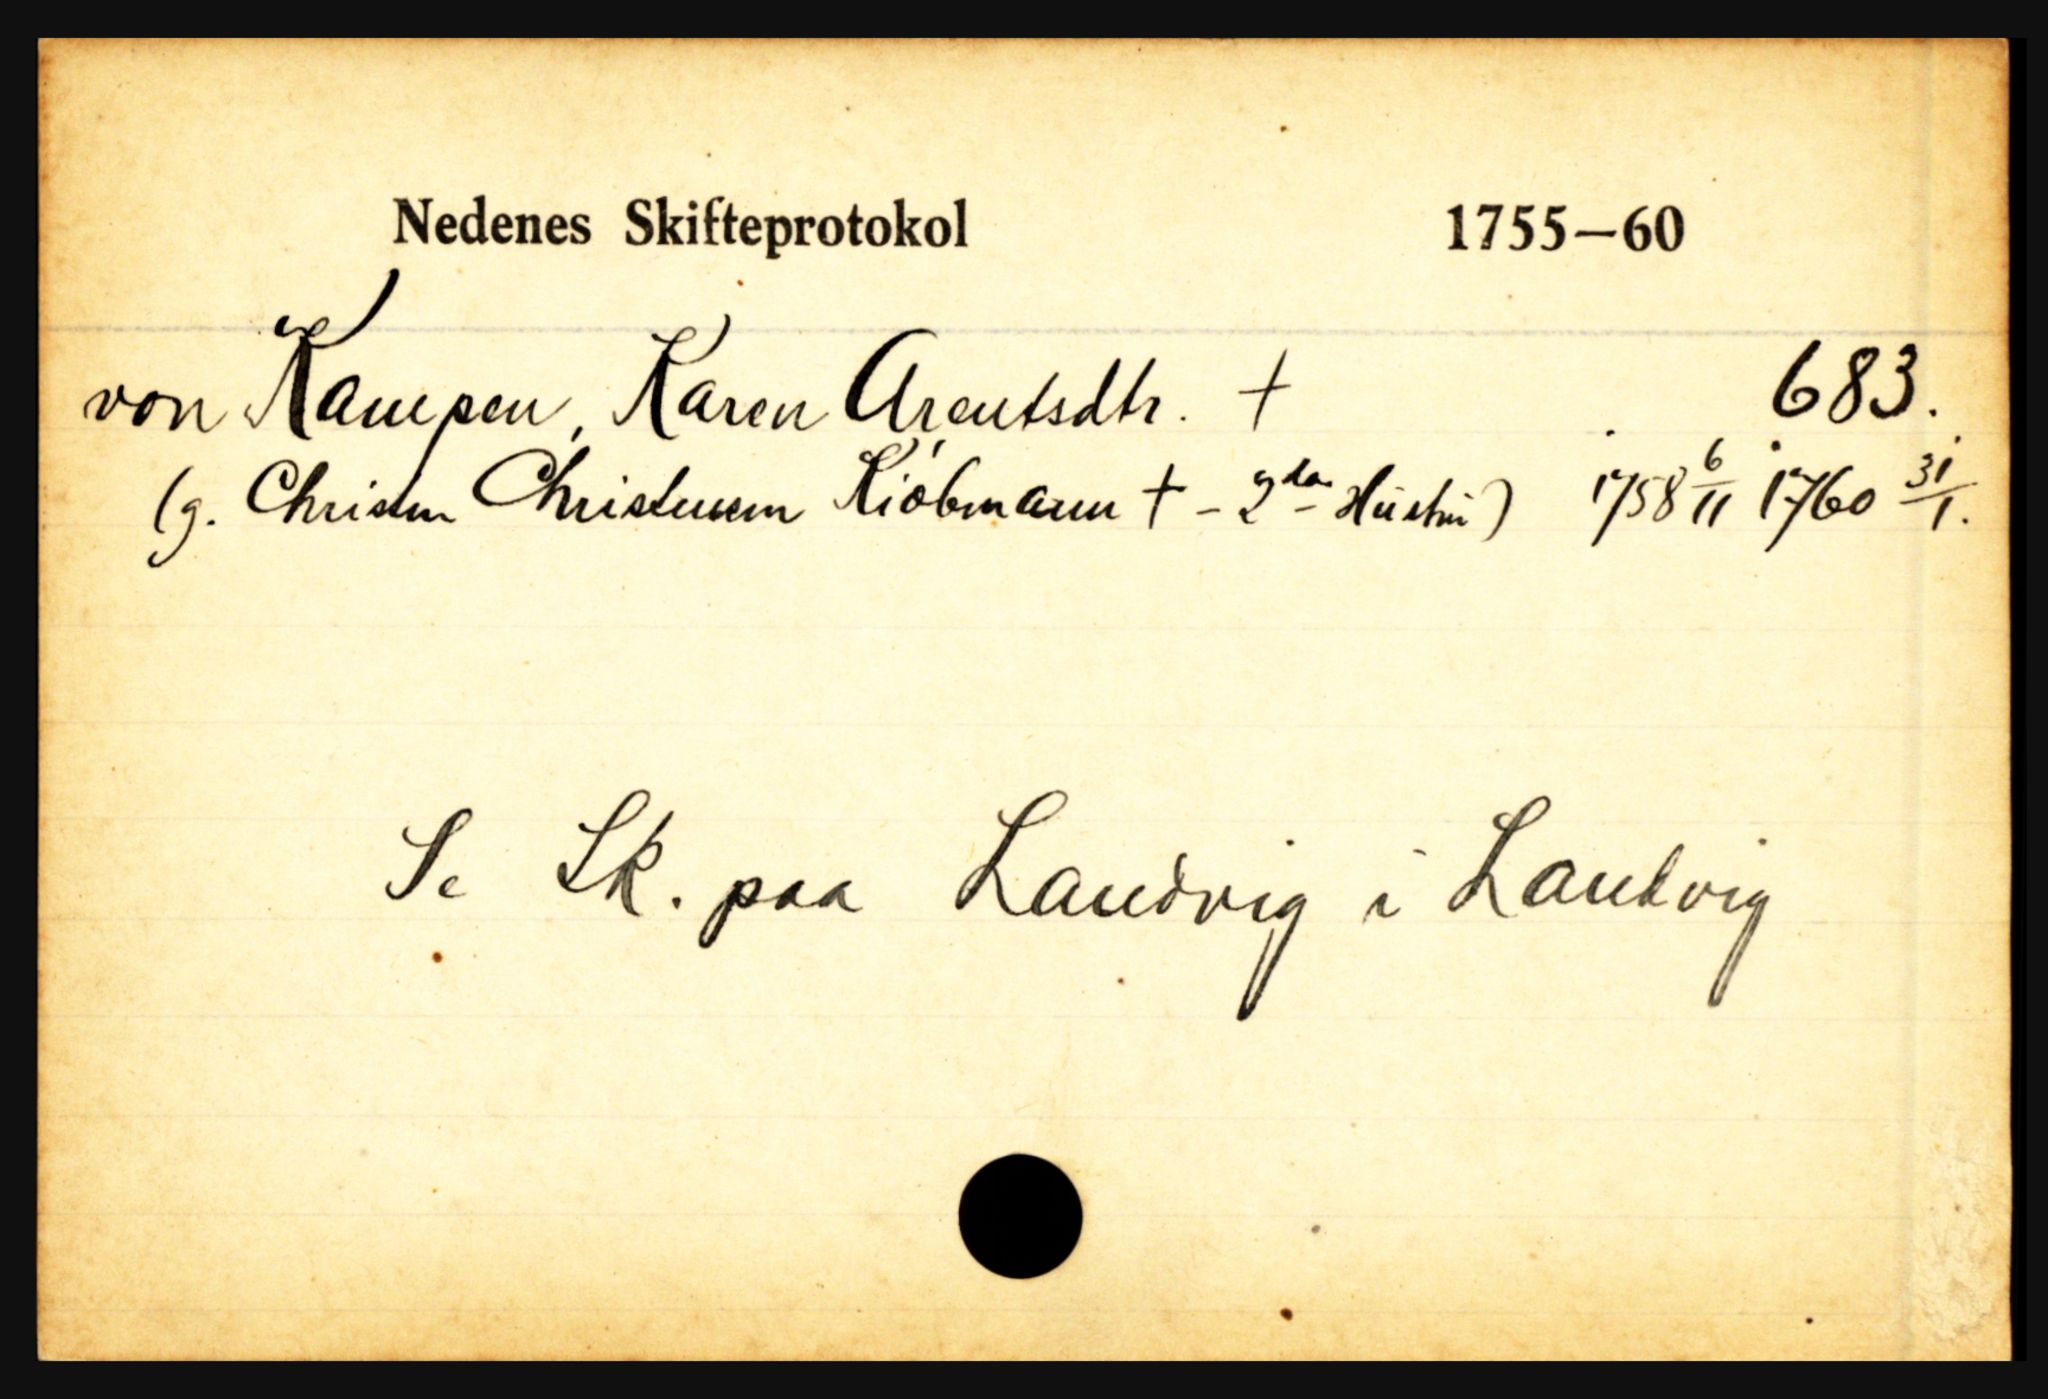 Nedenes Skifteprotokol 1755—60
von Kampen, Karen Arentsdtr. † 683.
(g. Christen Christensen Kiöbmann † - 2den Hustru) 1758 6/11 1760 31/1.
Se Sk. paa Landvig i Landvig